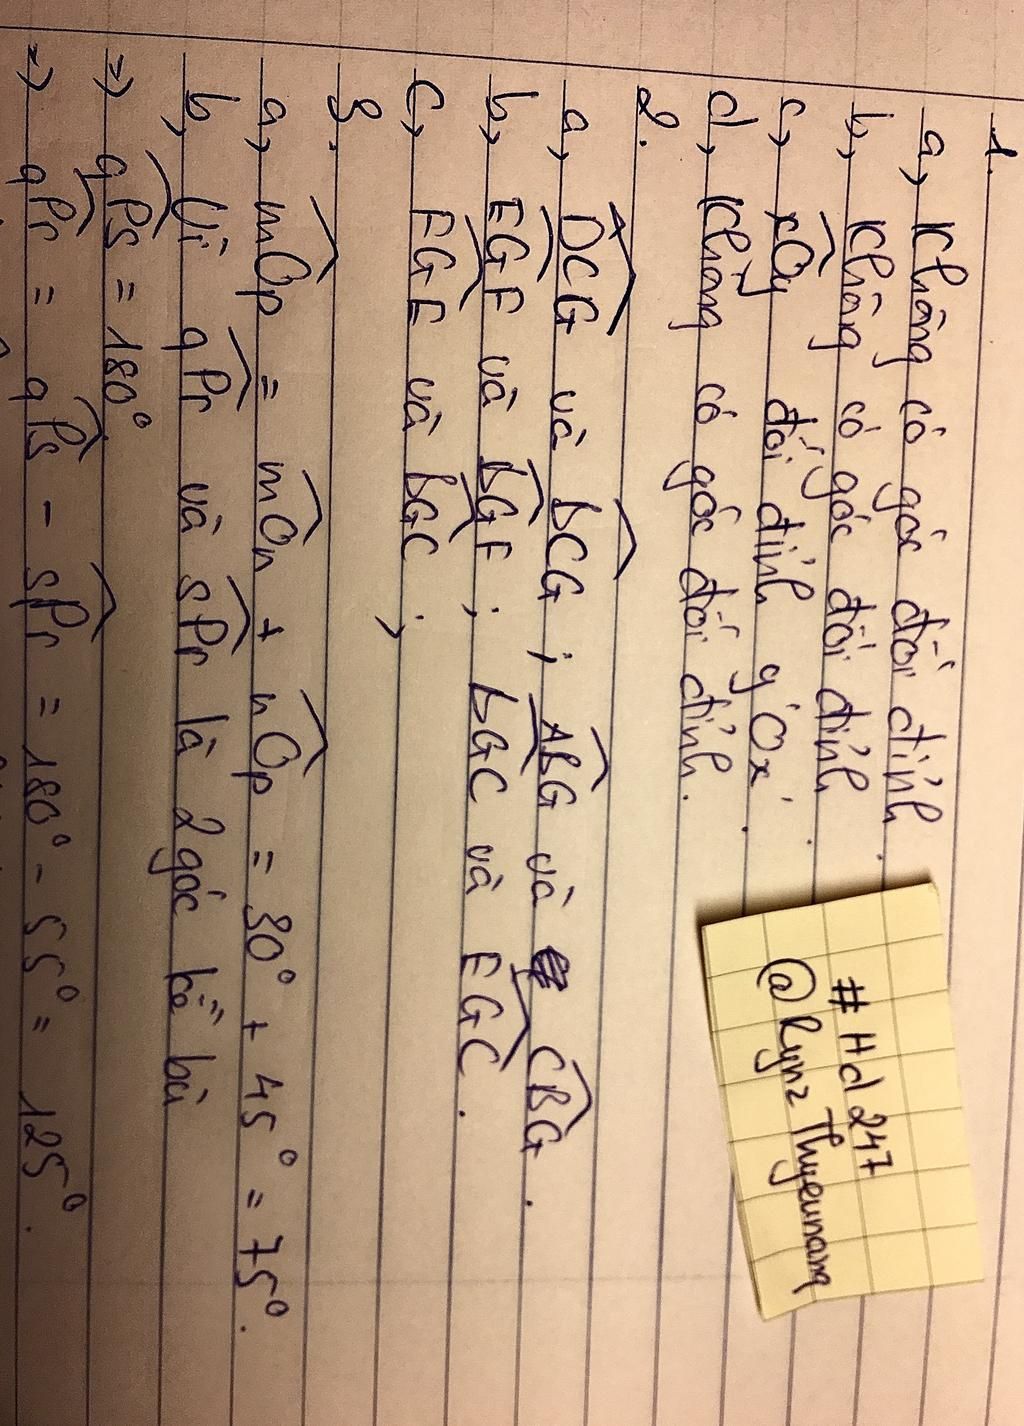 1.
a, Không có góc đối đỉnh.
b, Không có góc đối đỉnh.
c, xOy đối đỉnh y'Ox'.
d, Không có góc đối đỉnh.
2.
a, DCG và bCG ; ABG và CBG.
b, EGF và bGF ; bGC và EGC.
c, FGE và bGC ;
3.
a, mOp = mOn + nOp = 30° + 45° = 75°.
b, Vì qPr và sPr là 2 góc kề bù
=> qPs = 180°
=> qPr = qPs - sPr = 180° - 55° = 125°.
#Hd247
@Rynz Thyeunang